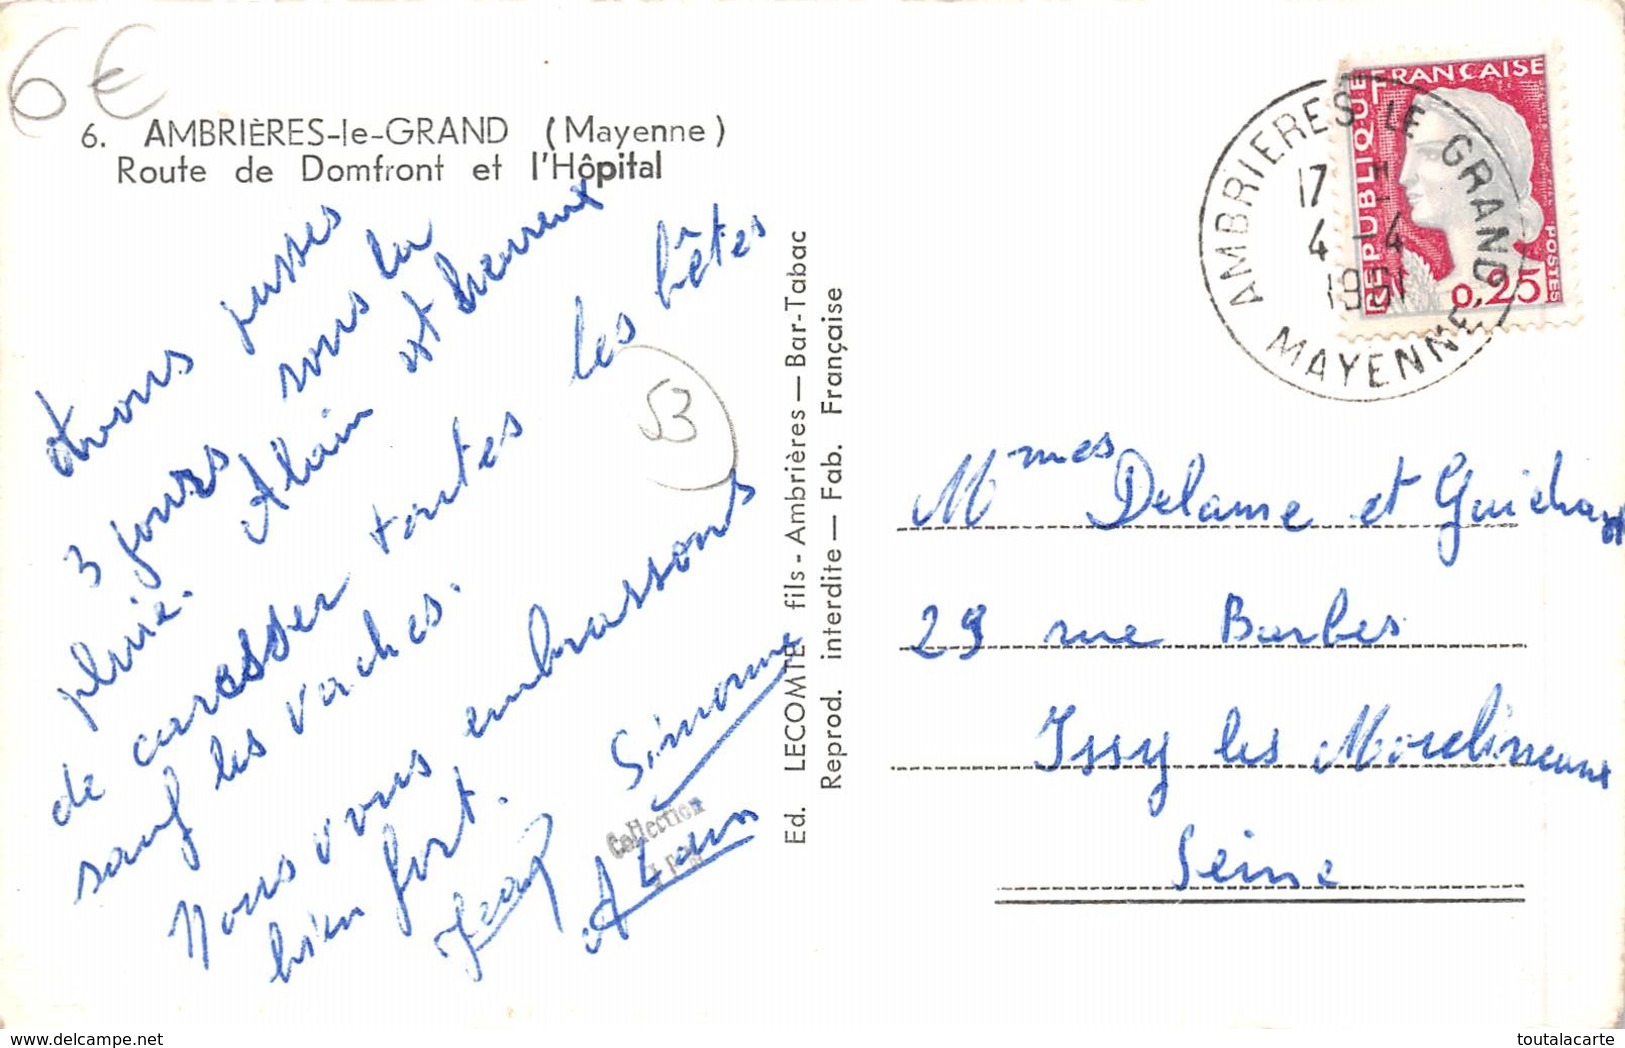 6€
6. AMBRIÈRES-le-GRAND (Mayenne)
Route de Domfront et l'Hôpital
Avons passes
3 jours sous la
pluie. Alain est heureux
de caresser toutes les bêtes
sauf les vaches.
Nous vous embrassons
bien fort.
Simonne
Jean
Alain
53
Collection
Ed. LECOMTE fils - Ambrières — Bar-Tabac
Reprod. interdite — Fab. Française
RÉPUBLIQUE FRANÇAISE
POSTES
0,25
AMBRIERES LE GRAND
17 H
4 - 4
1961
MAYENNE
Mmes Delaune et Guichard
29 rue Barbes
Issy les Moulineaux
Seine
toutalacarte